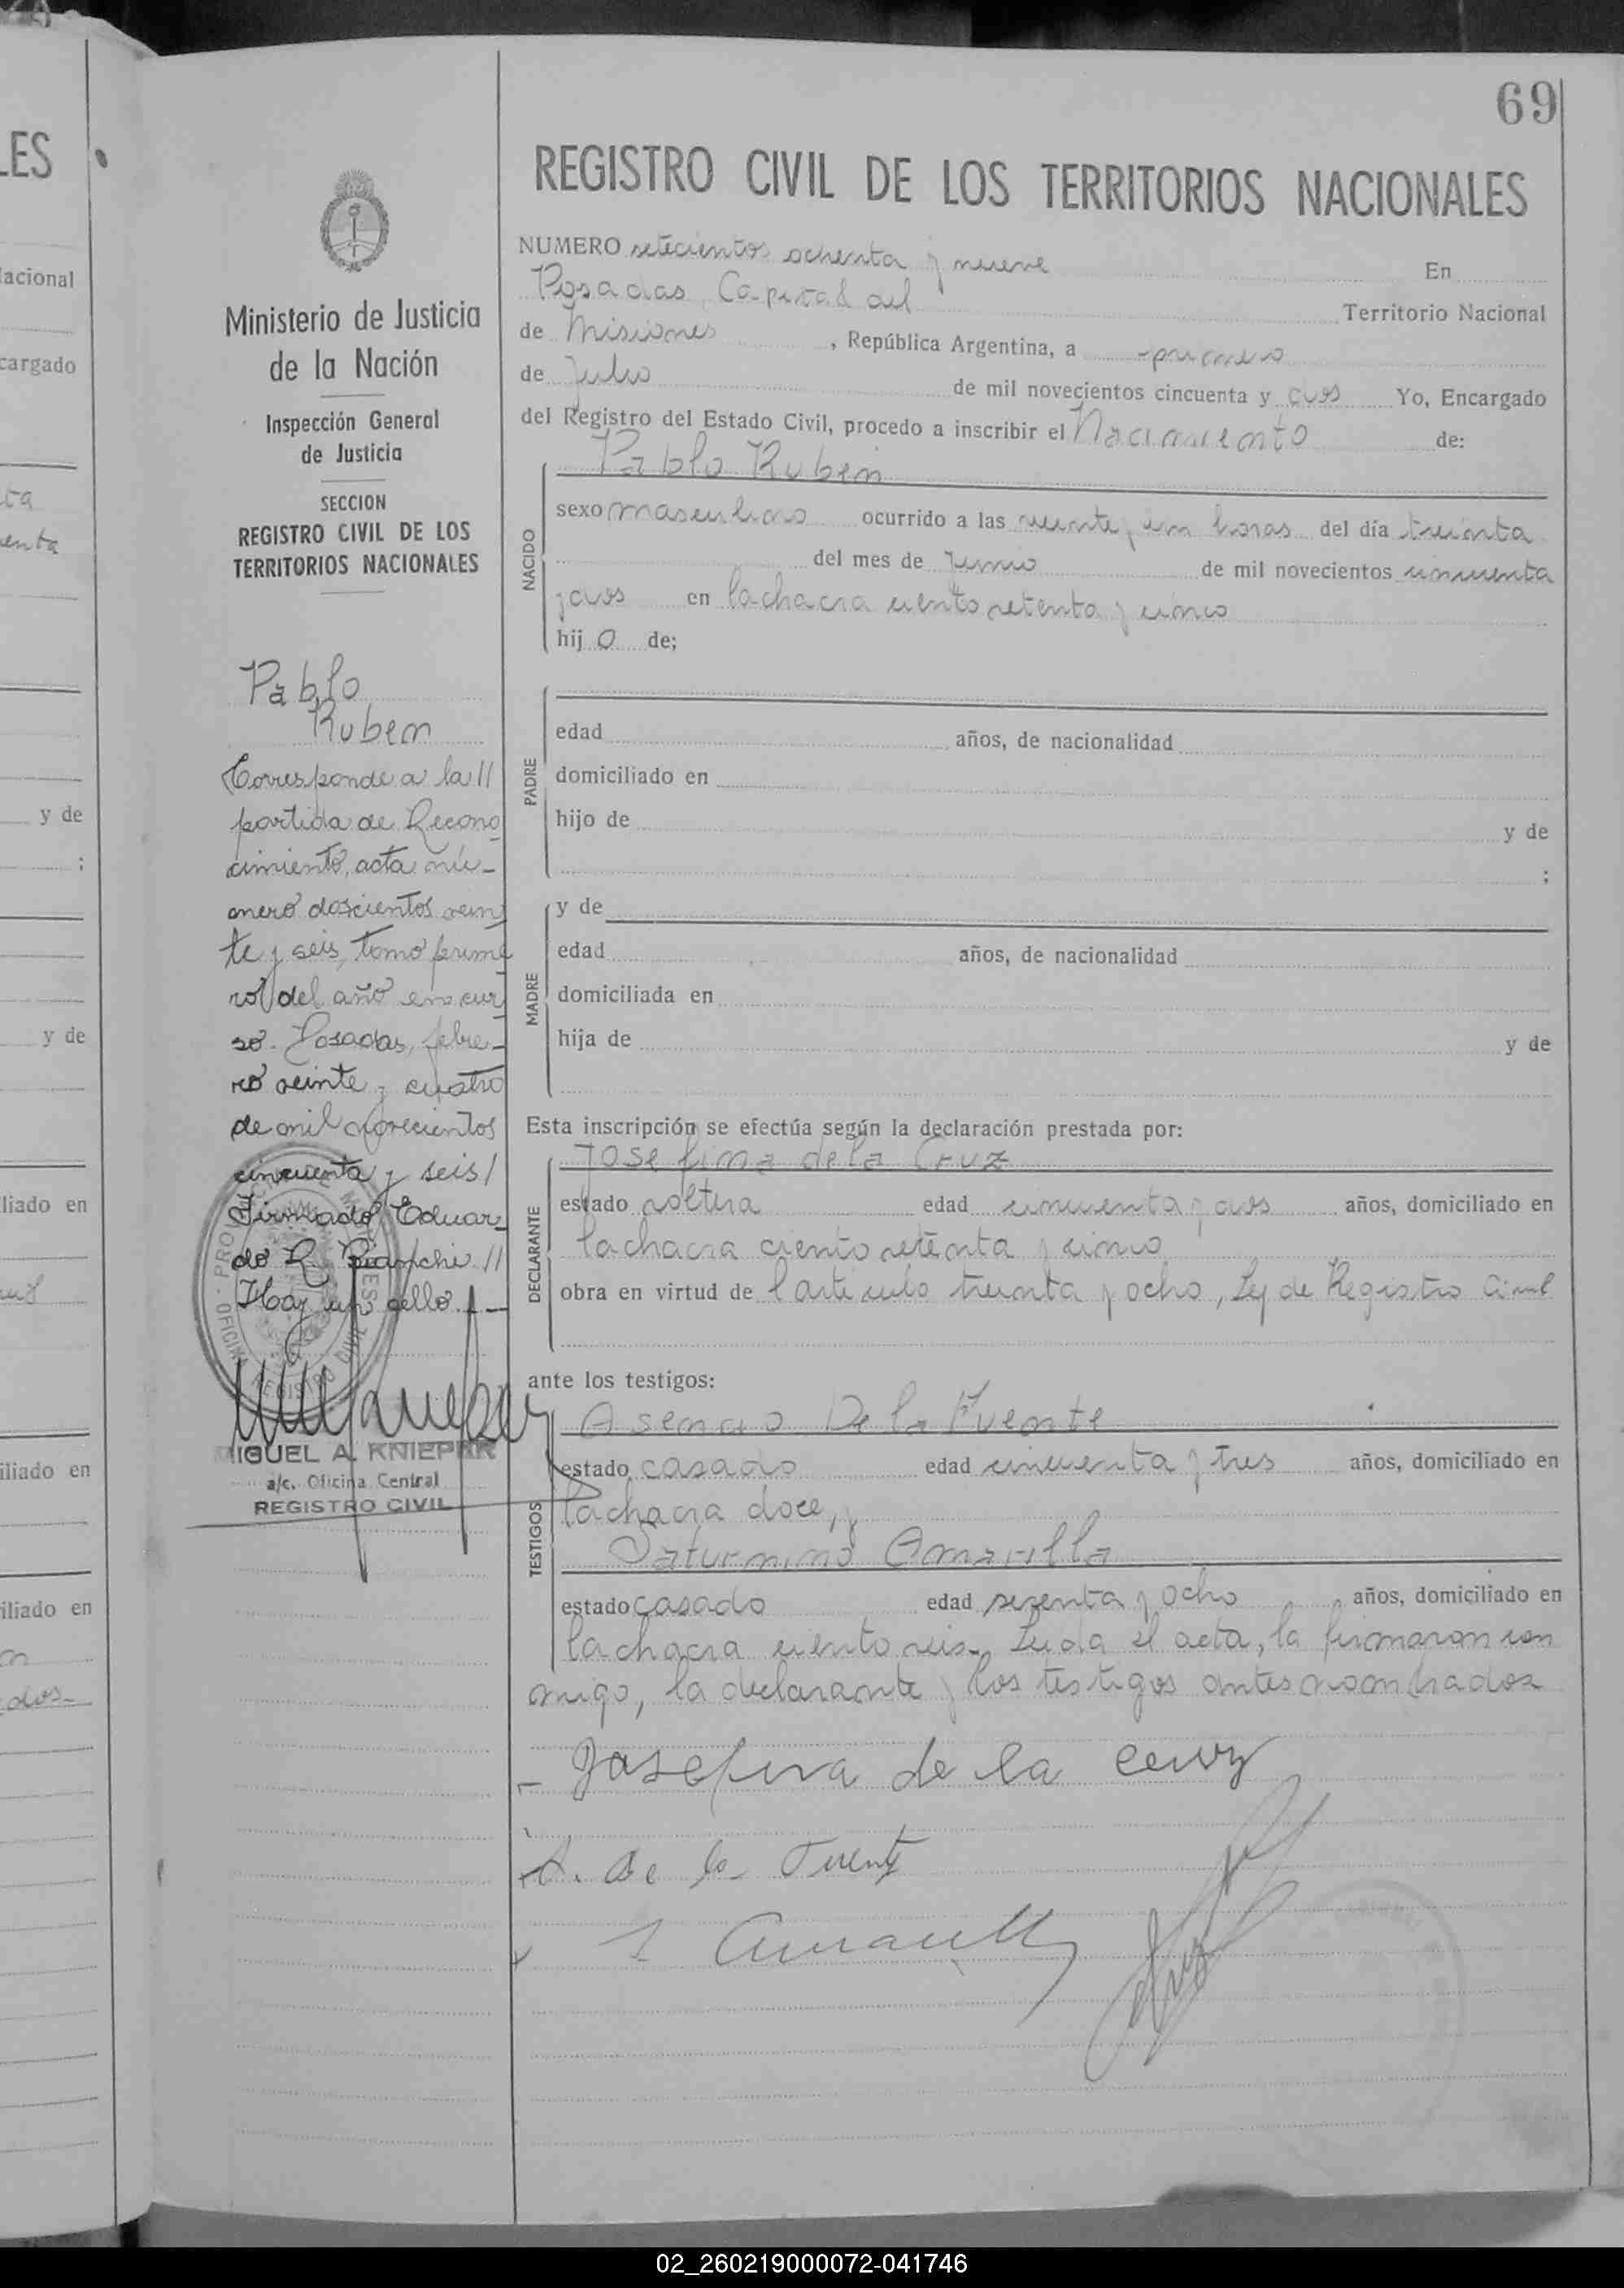 69
LES
REGISTRO CIVIL DE LOS TERRITORIOS NACIONALES
NUMERO setecientos ochenta y nueve En
Posadas, Capital del Territorio Nacional
de Misiones, República Argentina, a primero
de Julio de mil novecientos cincuenta y dos Yo, Encargado
del Registro del Estado Civil, procedo a inscribir el Nacimiento de:
NACIDO
Pablo Ruben
sexo masculino ocurrido a las veinte y un horas del día treinta
del mes de Junio de mil novecientos cincuenta
y dos en la chacra ciento setenta y cinco
hij o de;
PADRE
edad años, de nacionalidad
domiciliado en
hijo de y de
;
MADRE
y de
edad años, de nacionalidad
domiciliada en
hija de y de
Esta inscripción se efectúa según la declaración prestada por:
DECLARANTE
Josefina de la Cruz
estado soltera edad cincuenta y dos años, domiciliado en
la chacra ciento setenta y cinco
obra en virtud de l artículo treinta y ocho, Ley de Registro Civil
ante los testigos:
TESTIGOS
Asencio De la Fuente
estado casado edad cincuenta y tres años, domiciliado en
la chacra doce, y
Saturnino Amarilla
estado casado edad sesenta y ocho años, domiciliado en
la chacra ciento seis. Leida el acta, la firmaron con
migo, la declarante y los testigos antes nombrados
Josefina de la Cruz
A. de la Fuente
S Amarilla
Ministerio de Justicia
de la Nación
Inspección General
de Justicia
SECCION
REGISTRO CIVIL DE LOS
TERRITORIOS NACIONALES
Pablo
Ruben
Corresponde a la //
partida de Recono
cimiento, acta nú-
mero doscientos vein
te y seis, tomo prime
ro del año en cur
so. Posadas, febre-
ro veinte y cuatro
de mil novecientos
cincuenta y seis /
Firmado Eduar-
do R. Bianchi //
Hay un sello.-
MIGUEL A. KNIEPER
a/c. Oficina Central
REGISTRO CIVIL
acional
cargado
ta
enta
y de
;
y de
liado en
iliado en
iliado en
dos-
02_260219000072-041746